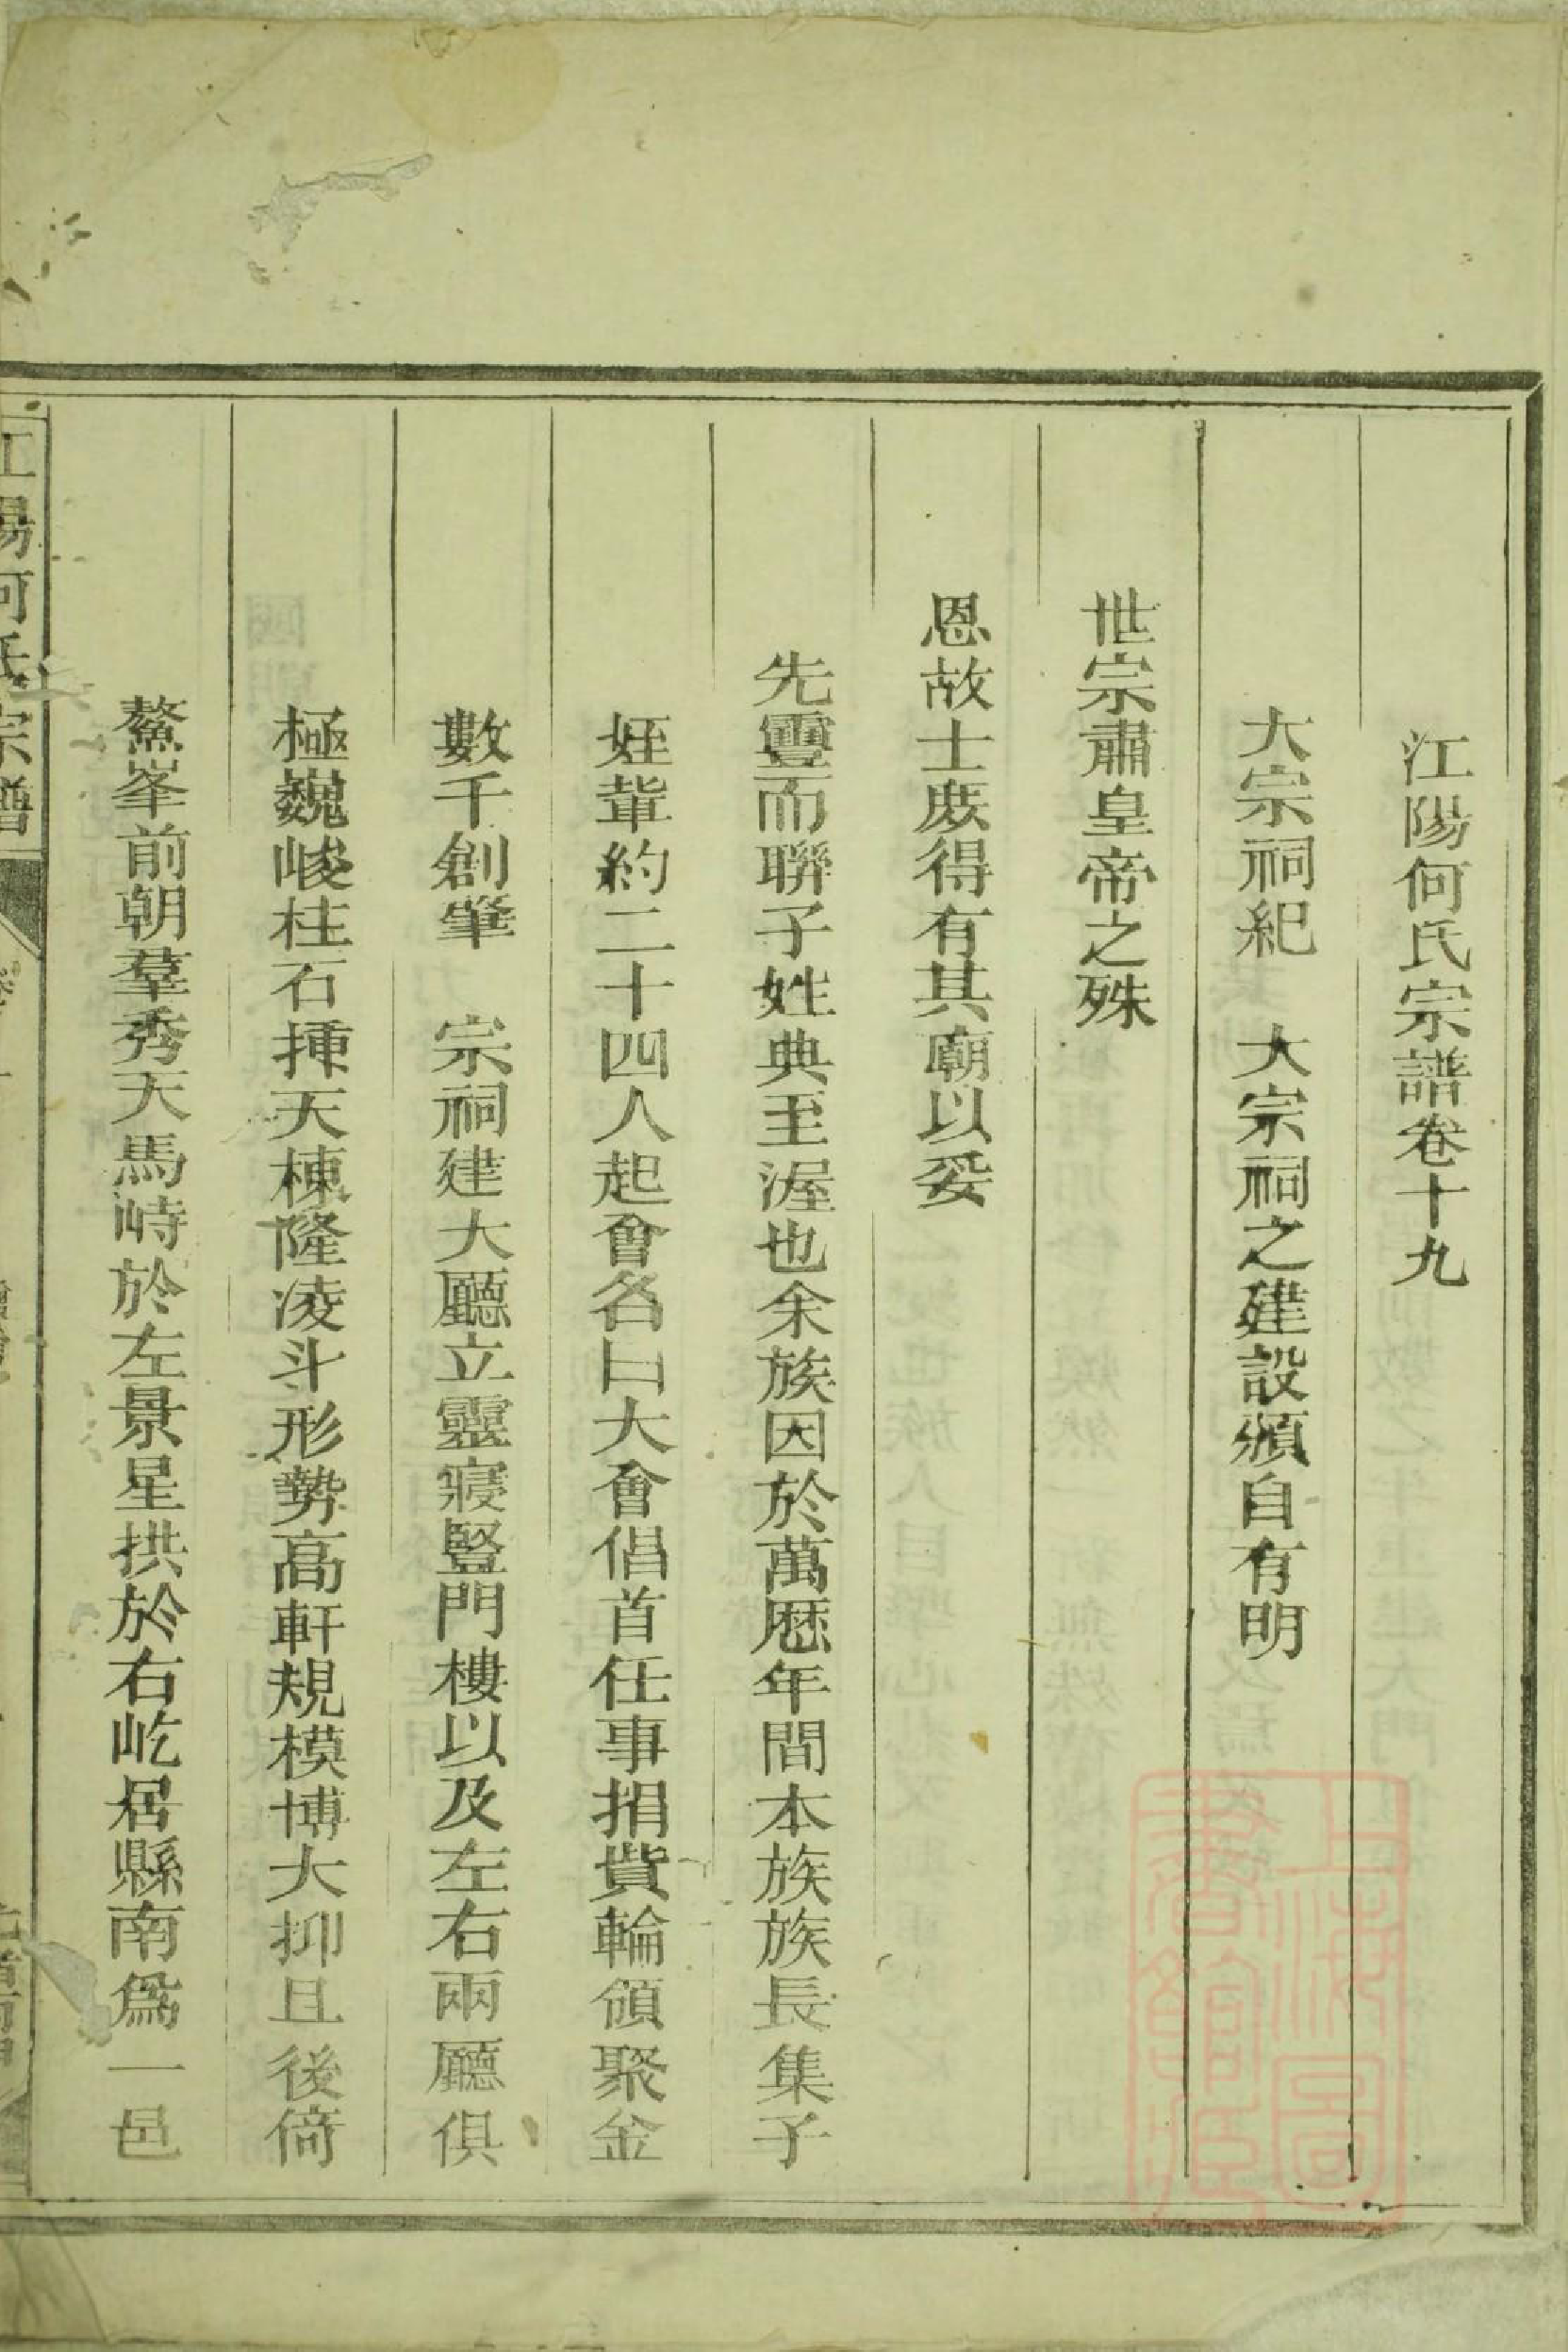 江陽何氏宗譜卷十九
大宗祠紀　大宗祠之建設頒自有明
世宗肅皇帝之殊
恩故士庻得有其廟以妥
先靈而聯子姓典至渥也余族因於萬厯年間本族族長集子
姪軰約二十四人起會名曰大會倡首任事捐貲輪頒聚金
數千創肇　宗祠建大廳立靈寢豎門樓以及左右兩廳俱
極巍峻柱石揷天棟隆凌斗形勢高軒規模博大抑且後倚
鰲峯前朝羣秀天馬峙於左景星拱於右屹居縣南爲一邑
江陽何氏宗譜
上海圖書館藏